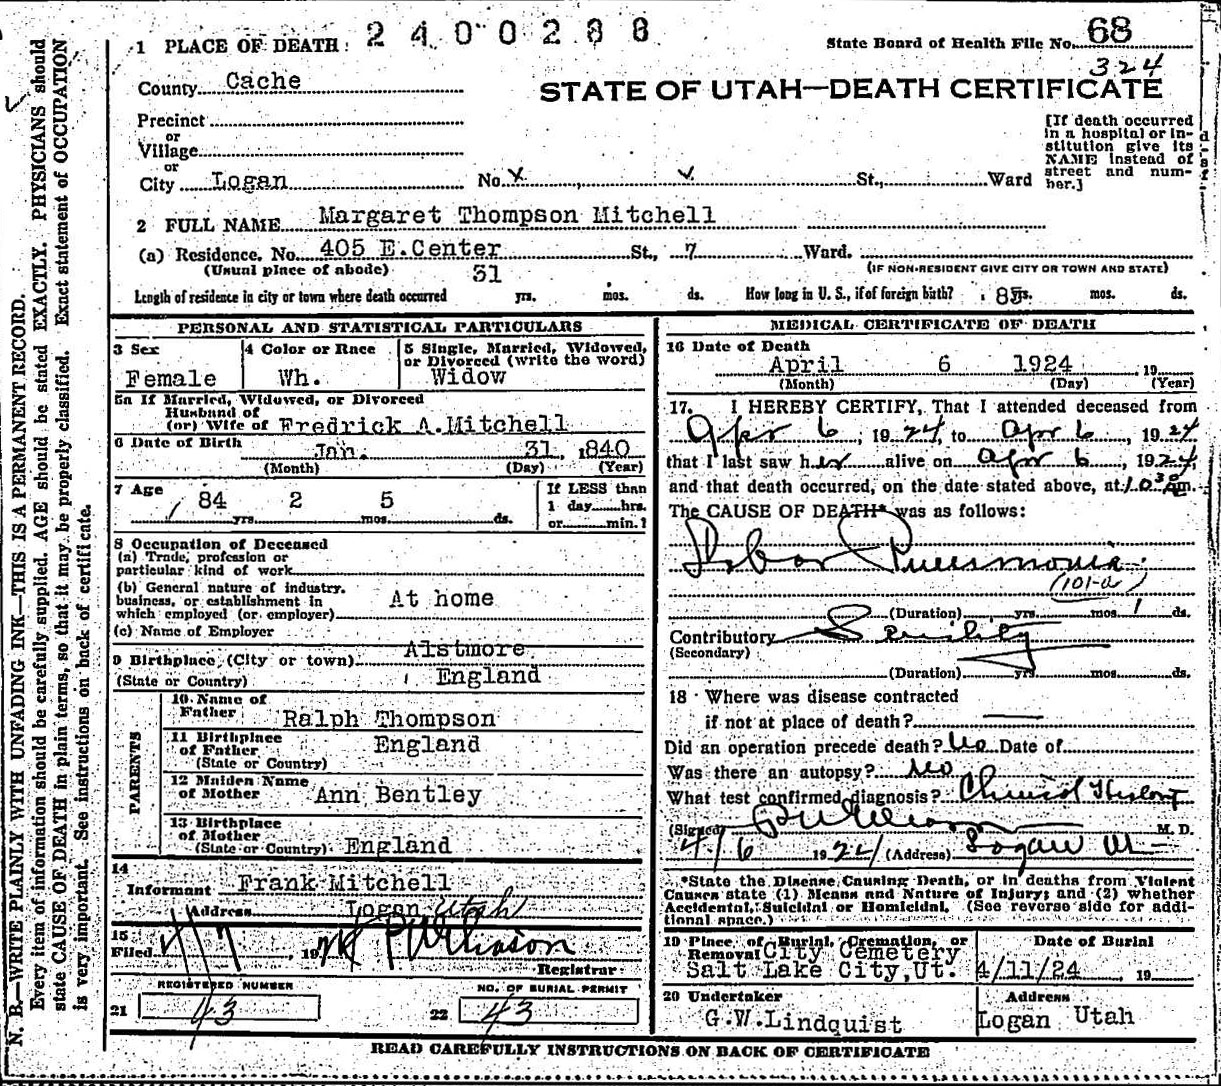 2400288
1 PLACE OF DEATH:
State Board of Health File No. 68
324
County Cache
STATE OF UTAH—DEATH CERTIFICATE
Precinct
or
Village
or
City Logan No. x , ✓ St., Ward
[If death occurred
in a hospital or in-
stitution give its
NAME instead of
street and num-
ber.]
2 FULL NAME Margaret Thompson Mitchell
(a) Residence. No. 405 E.Center St., 7 Ward.
(Usual place of abode) (IF NON-RESIDENT GIVE CITY OR TOWN AND STATE)
31
Length of residence in city or town where death occurred yrs. mos. ds. How long in U. S., if of foreign birth? yrs. mos. ds.
PERSONAL AND STATISTICAL PARTICULARS
3 Sex
Female
4 Color or Race
Wh.
5 Single, Married, Widowed,
or Divorced (write the word)
Widow
5a If Married, Widowed, or Divorced
Husband of
(or) Wife of Fredrick A.Mitchell
6 Date of Birth Jan. 31, 1840
(Month) (Day) (Year)
7 Age 84 2 5
yrs. mos. ds.
If LESS than
1 day hrs.
or min.?
8 Occupation of Deceased
(a) Trade, profession or
particular kind of work
(b) General nature of industry,
business, or establishment in
which employed (or employer) At home
(c) Name of Employer
9 Birthplace (City or town) Alstmore
(State or Country) England
PARENTS
10 Name of
Father Ralph Thompson
11 Birthplace
of Father England
(State or Country)
12 Maiden Name
of Mother Ann Bentley
13 Birthplace
of Mother
(State or Country) England
14
Informant Frank Mitchell
Address Logan Utah
15
Filed 4/7, 19
Registrar
REGISTERED NUMBER
21 43
NO. OF BURIAL PERMIT
22 43
MEDICAL CERTIFICATE OF DEATH
16 Date of Death
April 6 1924 , 19
(Month) (Day) (Year)
17. I HEREBY CERTIFY, That I attended deceased from
Apr 6, 1924, to Apr 6, 1924
that I last saw her alive on Apr 6, 1924,
and that death occurred, on the date stated above, at 10 30 m.
The CAUSE OF DEATH* was as follows:
Lobar Pneumonia
(101-a)
(Duration) yrs. mos. 1 ds.
Contributory Senility
(Secondary)
(Duration) yrs. mos. ds.
18 Where was disease contracted
if not at place of death?
Did an operation precede death? No Date of
Was there an autopsy? No
What test confirmed diagnosis?
(Signed) M. D.
4/6 1924 (Address) Logan Ut
*State the Disease Causing Death, or in deaths from Violent
Causes state (1) Means and Nature of Injury; and (2) whether
Accidental, Suicidal or Homicidal. (See reverse side for addi-
tional space.)
19 Place of Burial, Cremation, or
Removal City Cemetery
Salt Lake City,Ut.
Date of Burial
4/11/24 , 19
20 Undertaker
G.W.Lindquist
Address
Logan Utah
READ CAREFULLY INSTRUCTIONS ON BACK OF CERTIFICATE
N. B.—WRITE PLAINLY WITH UNFADING INK—THIS IS A PERMANENT RECORD.
Every item of information should be carefully supplied. AGE should be stated EXACTLY. PHYSICIANS should
state CAUSE OF DEATH in plain terms, so that it may be properly classified. Exact statement of OCCUPATION
is very important. See instructions on back of certificate.